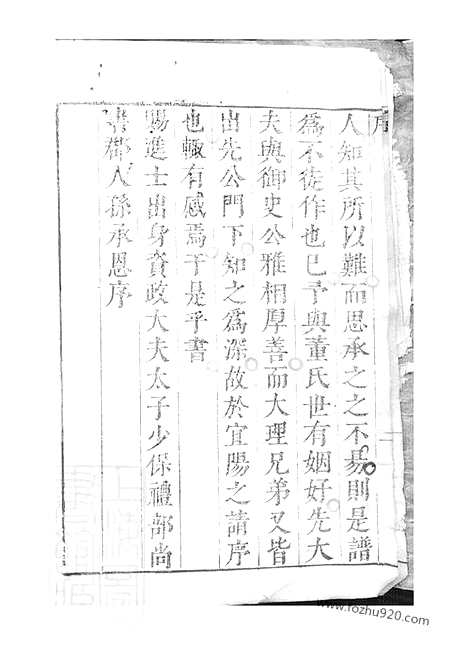 序
人知其所以難而思承之之不易則是譜
為不徒作也已予與董氏世有姻好先大
夫與御史公雅相厚善而大理兄弟又皆
出先公門下知之為深故於宜陽之請序
也輒有感焉于是乎書
賜進士出身資政大夫太子少保禮部尚
書郡人孫承恩序
www.fozhu920.com